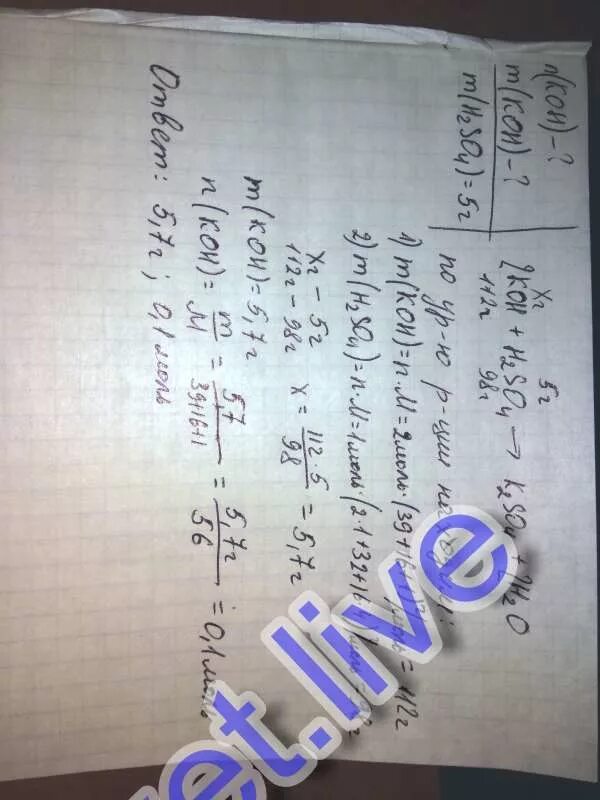 n(KOH) - ?
m(KOH) - ?
m(H₂SO₄) = 5г
xг 5г
2KOH + H₂SO₄ → K₂SO₄ + 2H₂O
112г 98г
по ур-ю р-ции находим:
1) m(KOH) = n·M = 2моль·(39+16+1) = 112г
2) m(H₂SO₄) = n·M = 1моль·(2·1+32+16·4) = 98г
xг - 5г
112г - 98г x = 112·5/98 = 5,7г
m(KOH) = 5,7г
n(KOH) = m/M = 5,7/39+16+1 = 5,7г/56 = 0,1моль
Ответ: 5,7г; 0,1моль
et.live